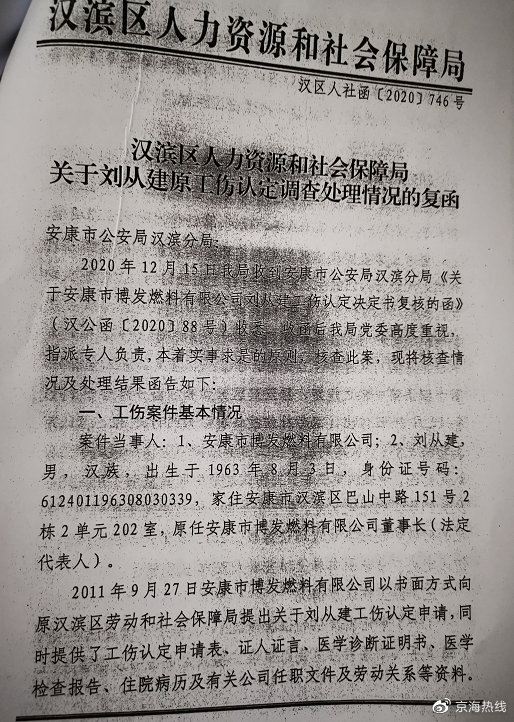 汉滨区人力资源和社会保障局
汉区人社函〔2020〕746号
汉滨区人力资源和社会保障局
关于刘从建原工伤认定调查处理情况的复函
安康市公安局汉滨分局:
2020年12月15日我局收到安康市公安局汉滨分局《关
于安康市博发燃料有限公司刘从建工伤认定决定书复核的函》
(汉公函〔2020〕88号)收悉。收函后我局党委高度重视,
指派专人负责,本着实事求是的原则,核查此案,现将核查情
况及处理结果函告如下:
一、工伤案件基本情况
案件当事人:1、安康市博发燃料有限公司;2、刘从建,
男,汉族,出生于1963年8月3日,身份证号码:
612401196308030339,家住安康市汉滨区巴山中路151号2
栋2单元202室,原任安康市博发燃料有限公司董事长(法定
代表人)。
2011年9月27日安康市博发燃料有限公司以书面方式向
原汉滨区劳动和社会保障局提出关于刘从建工伤认定申请,同
时提供了工伤认定申请表、证人证言、医学诊断证明书、医学
检查报告、住院病历及有关公司任职文件及劳动关系等资料。
京海热线